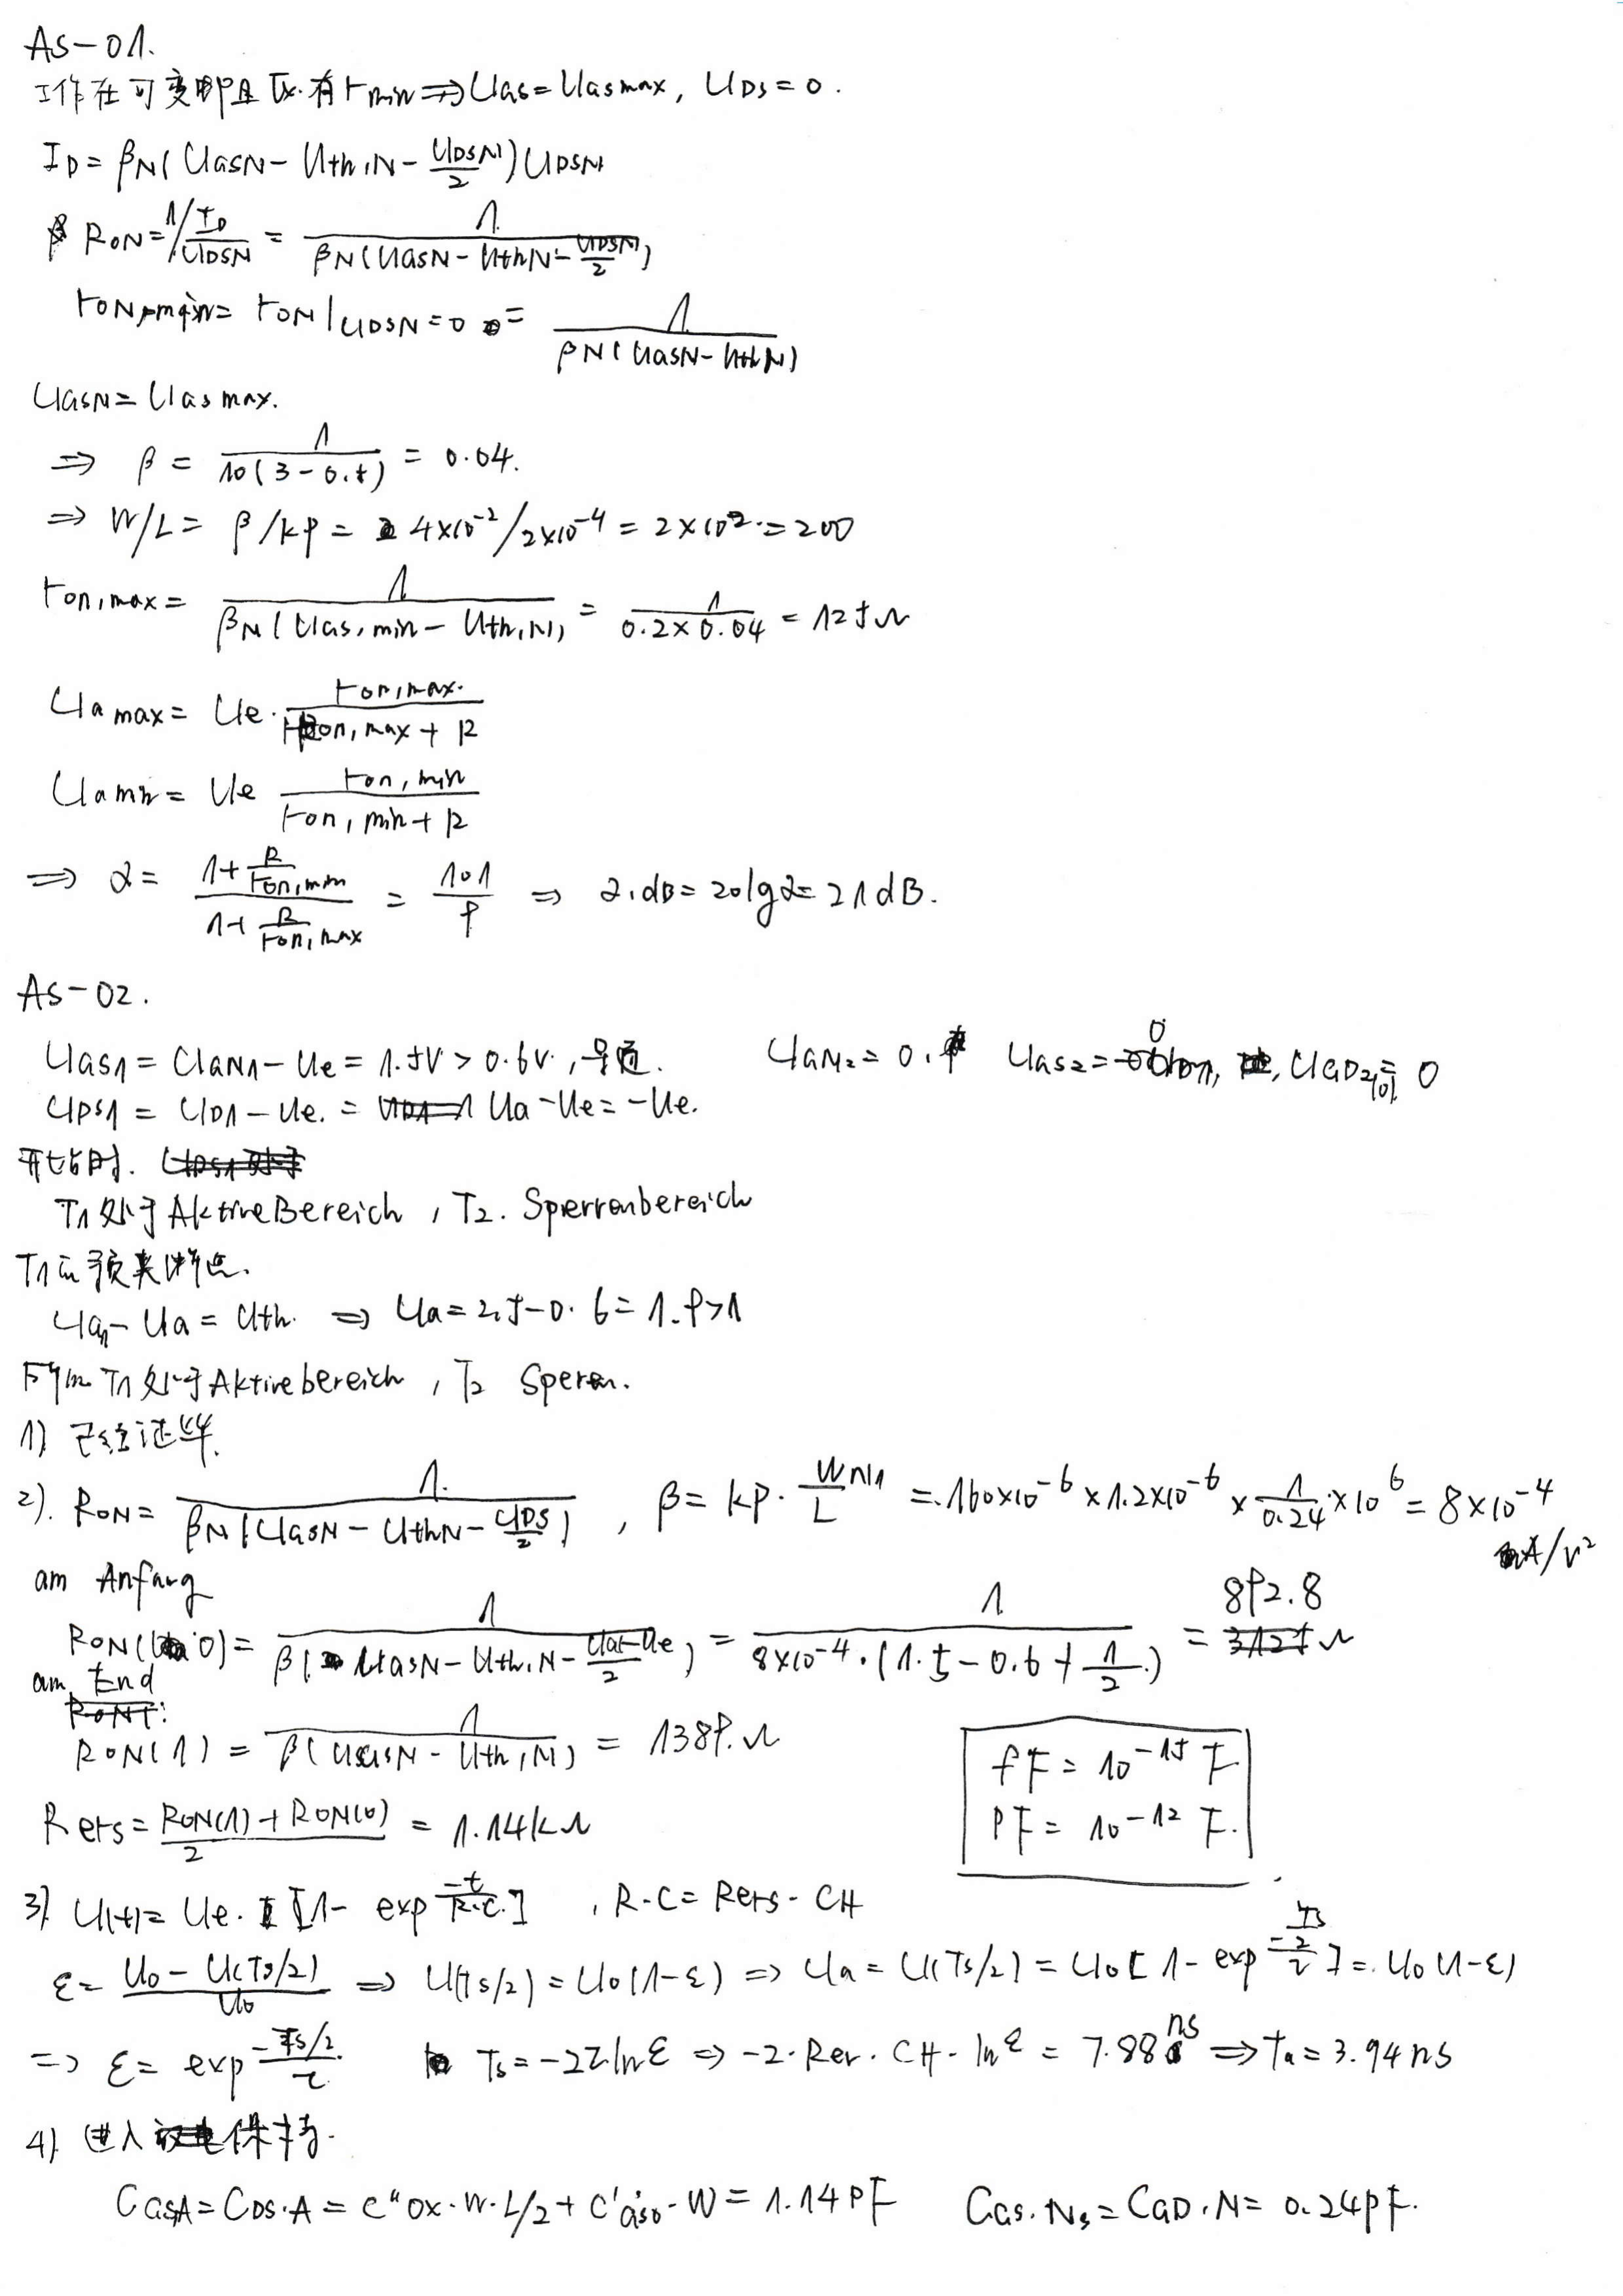 AS-01.
工作在可变电阻区.有rmin ⇒ UGS = UGSmax, UDS = 0.
ID = βN(UGSN - Uth,N - UDSN/2) UDSN
RON = 1/(ID/UDSN) = 1/(βN(UGSN - UthN - UDSN/2))
rON,min = rON|UDSN=0 = 1/(βN(UGSN - UthN))
UGSN = UGSmax.
⇒ β = 1/(10(3-0.5)) = 0.04.
⇒ W/L = β/kp = 4×10^-2/2×10^-4 = 2×10^2 = 200
ron,max = 1/(βN(UGS,min - Uth,N)) = 1/(0.2×0.04) = 125Ω
Ua max = Ue · ron,max/(ron,max + R)
Ua min = Ue ron,min/(ron,min + R)
⇒ α = (1 + R/ron,min)/(1 + R/ron,max) = 101/9 ⇒ α,dB = 20lgα = 21dB.
AS-02.
UGS1 = UGN1 - Ue = 1.5V > 0.6V, 导通. UGN2 = 0. UGS2 = 0, UGD2(0) = 0
UDS1 = UD1 - Ue. = Ua - Ue = -Ue.
开始时.
T1处于AktiveBereich, T2. Sperrenbereich
T1的预夹断点.
UG1 - Ua = Uth. ⇒ Ua = 2.5-0.6 = 1.9>1
所以T1处于Aktivebereich, T2 Speren.
1) 已经证毕.
2). RON = 1/(βN(UGSN - UthN - UDS/2)), β = kp · WN1/L = 160×10^-6 × 1.2×10^-6 × 1/0.24 × 10^6 = 8×10^-4 A/V²
am Anfang
RON(0) = 1/(β(UGSN - Uth,N - (Ua-Ue)/2)) = 1/(8×10^-4 · (1.5-0.6+1/2)) = 892.8 Ω
am End
RON(1) = 1/(β(UGSN - Uth,N)) = 1389.Ω
fF = 10^-15 F
PF = 10^-12 F.
Rers = (RON(1) + RON(0))/2 = 1.14kΩ
3) U(t) = Ue · [1 - exp -t/R·C], R·C = Rers · CH
ε = (U0 - U(Ts/2))/U0 ⇒ U(Ts/2) = U0(1-ε) ⇒ Ua = U(Ts/2) = U0[1 - exp -(Ts/2)/τ] = U0(1-ε)
⇒ ε = exp -(Ts/2)/τ Ts = -2τlnε ⇒ -2·Rer·CH·lnε = 7.88ns ⇒ Ta = 3.94ns
4) 进入保持.
CGSA = CDS·A = C"ox·W·L/2 + C'GS0·W = 1.14PF CGS.Ns = CGD.N = 0.24pF.